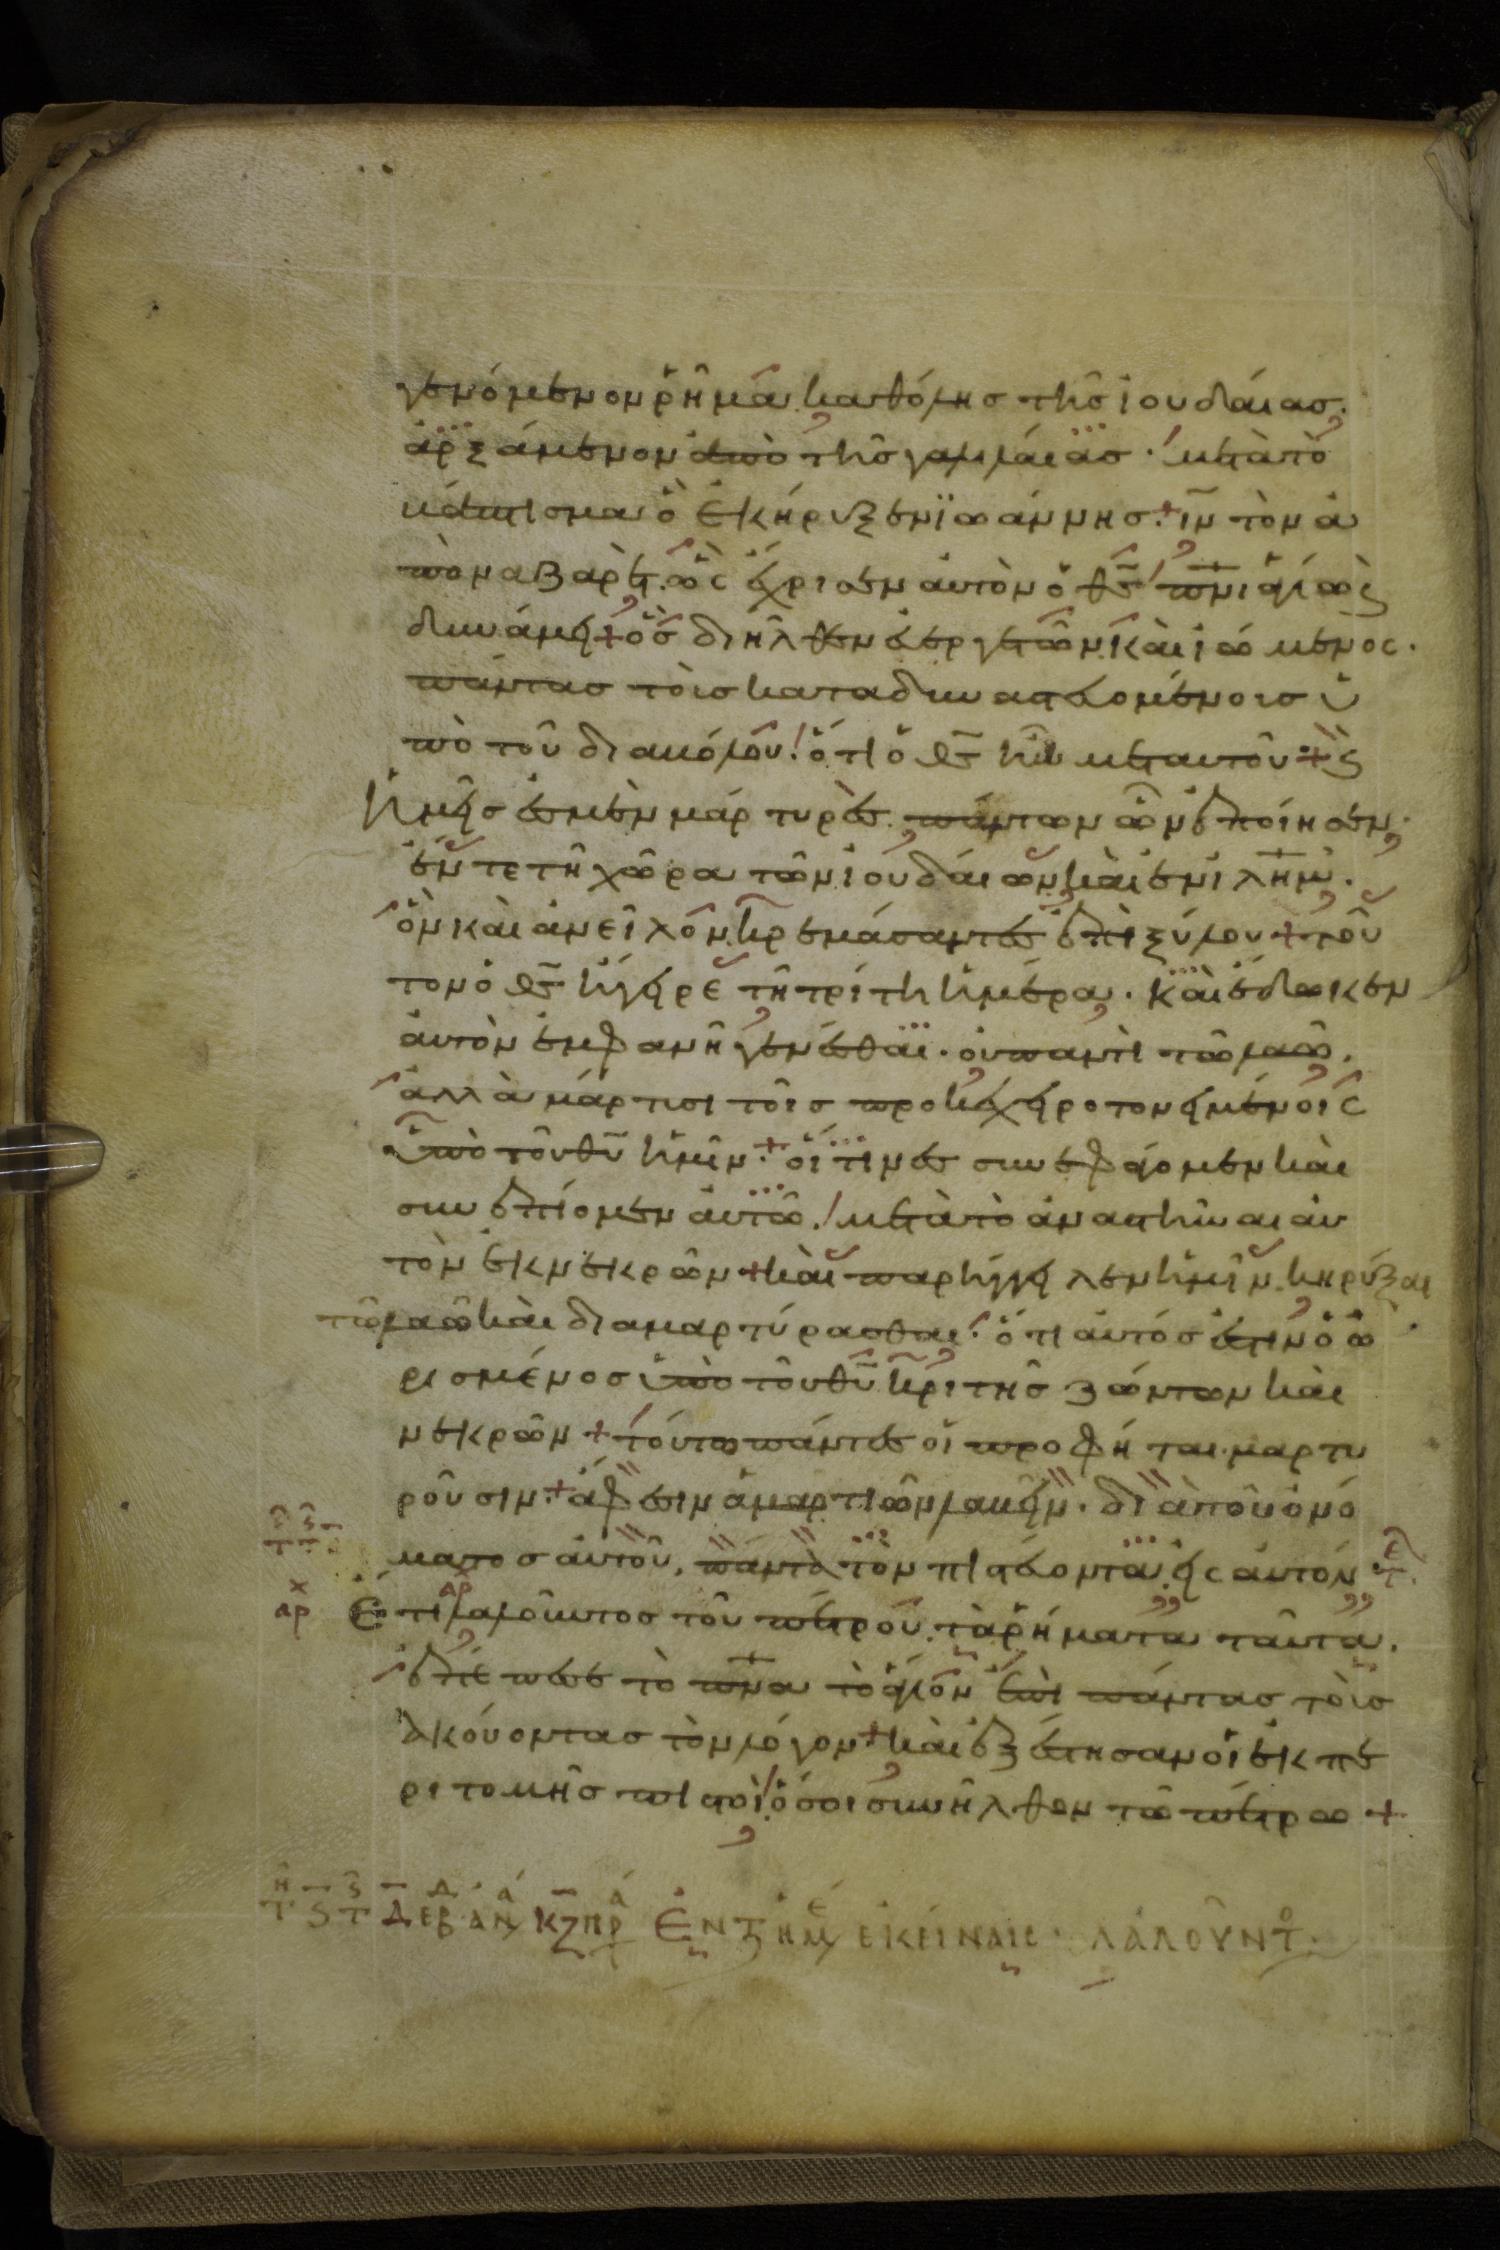 γενόμενον ῥῆμα καθόλης τῆς ἰουδάιασ.
ἀρξάμενον ἀπὸ τῆς γαλιλάιασ. μετὰ τὸ
βάπτισμα ὃ ἐκήρυξεν ϊωάννησ. ι̅ν̅ τὸν ἀ
πὸ ναζαρὲτ. ὡς ἔχρισεν ἀυτὸν ὁ θ̅ς̅ π̅ν̅ι ἁγίω ϗ
δυνάμει + ὃσ διῆλθεν ἐυεργετῶν καὶ ἰώμενος.
πάντασ τοὺσ καταδυναστευομένουσ ὑ
πὸ τοῦ διαβόλου. ὅτι ὁ θ̅ς̅ ἦν μετ αυτοῦ + ϗ
ἡμεῖσ ἐσμὲν μάρτυρες. πάντων ὧν ἐποίησεν.
ἔν τε τῆ χώρα τῶν ἰουδάιων καὶ ἐν ἰ̅λ̅η̅μ̅.
ὃν καὶ ἀνεῖλον κρεμάσαντες ἐπὶ ξύλου + τοῦ
τον ὁ θ̅ς̅ ἤγειρε τῆ τρίτη ἡμέρα. καὶ ἔδωκεν
ἀυτὸν ἐμφανῆ γενέσθαι. ὀυ παντὶ τῶ λαῶ.
ἀλλὰ μάρτυσι τοῖσ προκεχειροτονημένοις
ὑπὸ τοῦ θ̅υ̅ ἡμῖν. + οἵτινες συνεφάγομεν καὶ
συνεπίομεν ἀυτῶ. μετὰ τὸ ἀναστῆναι ἀυ
τὸν ἐκ νεκρῶν + καὶ παρήγγειλεν ἡμῖν. κηρύξαι
τῶ λαῶ καὶ διαμαρτύρασθαι. ὅτι ἀυτόσ ἐστιν ὁ ὡ
ρισμένοσ ὑπὸ τοῦ θ̅υ̅ κριτὴσ ζώντων καὶ
νεκρῶν + τούτω πάντες οἱ προφῆται μαρτυ
ροῦσιν. + ἄφεσιν ἁμαρτιῶν λαβεῖν. διὰ τοῦ ὀνό
ματοσ ἀυτοῦ, πάντα τὸν πιστέυοντα εἰς αυτόν. τε
αρχ Ἔτι λαλοῦντοσ τοῦ πέτρου. τὰ ῥήματα ταῦτα.
ἐπέπεσε τὸ π̅ν̅α τὸ ἅγιον ἐπὶ πάντασ τοὺσ
ἀκούοντασ τὸν λόγον + καὶ ἐξέστησαν οἱ ἐκ πε
ριτομῆσ πιστοὶ. ὅσοι συνῆλθον τῶ πέτρω +
ἐν τ ημ εκείναις. λαλοῦντ